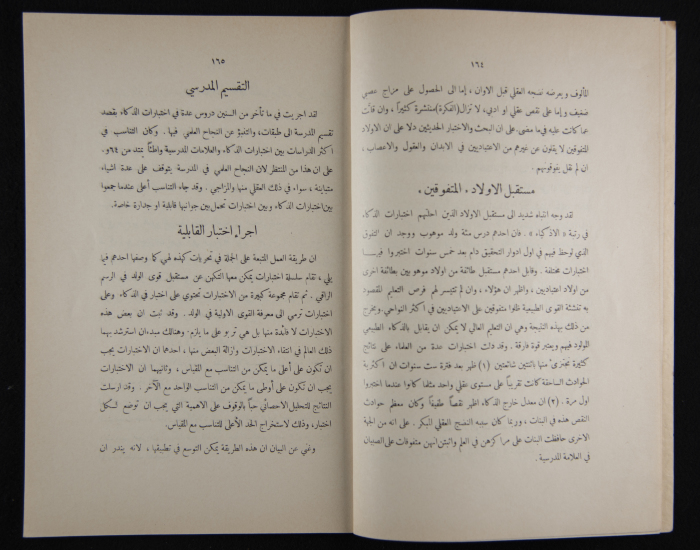 ١٦٤
المألوف ويعرضه نضجه العقلي قبل الاوان ، إما الى الحصول على مزاج عصبي
ضعيف وإما على نقص عقلي او ادبي، لا تزال (الفكرة) منتشرة كثيراً ، وان قلّت
عما كانت عليه في ما مضى. على ان البحث والاختبار الحديثين دلا على ان الاولاد
المتفوقين لا يقلون عن غيرهم من الاعتياديين في الابدان والعقول والاعصاب ،
ان لم نقل يفوقونهم .
مستقبل الاولاد « المتفوقين »
لقد وجه انتباه شديد الى مستقبل الاولاد الذين احلتهم اختبارات الذكاء
في رتبة « الاذكياء » . فان احدهم درس مئة ولد موهوب ووجد ان التفوق
الذي لوحظ فيهم في اول ادوار التحقيق دام بعد خمس سنوات اختبروا فيها
اختبارات مختلفة . وقابل احدهم مستقبل طائفة من اولاد موهوبين بطائفة اخرى
من اولاد اعتياديين ، واظهر ان هؤلاء ، وان لم تتيسر لهم فرص التعليم المقصود
به تنشئة القوى الطبيعية ظلوا متفوقين على الاعتياديين في اكثر النواحي ويخرج
من ذلك بهذه النتيجة وهي ان التعليم العالي لا يمكن ان يقابل بالذكاء الطبيعي
المولود فيهم ويعتبر قوة فارقة . وقد دلت اختبارات عدة من العلماء على نتائج
كثيرة نجتزئ منها باثنتين شائعتين (١) ظهر بعد فترة ست سنوات ان اكثرية
الحوادث السالفة كانت تقريباً على مستوى عقلي واحد مثلما كانوا عندما اختبروا
اول مرة . (٢) ان معدل خارج الذكاء اظهر نقصاً طفيفاً وكان معظم حوادث
النقص هذه في البنات ، وربما كان سببه النضج العقلي المبكر . على انه من الجهة
الاخرى حافظت البنات على مراكزهن في العلم واثبتن انهن متفوقات على الصبيان
في العلامة المدرسية .
١٦٥
التقسيم المدرسي
لقد اجريت في ما تأخر من السنين دروس عدة في اختبارات الذكاء بقصد
تقسيم المدرسة الى طبقات، والتنبؤ عن النجاح العلمي فيها . وكان التناسب في
اكثر الدراسات بين اختبارات الذكاء والعلامات المدرسية واطئاً يمتد من ٦٤و.
على ان هذا من المنتظر لان النجاح العلمي في المدرسة يتوقف على عدة اشياء
متباينة ، سواء في ذلك العقلي منها والمزاجي . وقد جاء التناسب أعلى عندما جمعوا
بين اختبارات الذكاء وبين اختبارات تحمل بين جوانبها قابلية او جدارة خاصة.
اجراء اختبار القابلية
ان طريقة العمل المتبعة على الجملة في تحريات كهذه لهي كما وصفها احدهم فيما
يلي ، تقام سلسلة اختبارات يمكن معها التكهن عن مستقبل قوى الولد في الرسم
الراقي . ثم تقام مجموعة كبيرة من الاختبارات تحتوي على اختبار في الذكاء وعلى
اختبارات ترمي الى معرفة القوى الاولية في الولد . وقد ثبت ان بعض هذه
الاختبارات لا فائدة منها بل هي تربو على ما يلزم. وهنالك مبدءان استرشد بهما
ذلك العالم في انتقاء الاختبارات وازالة البعض منها ، احدهما ان الاختبارات يجب
ان تكون على أعلى ما يمكن من التناسب مع المقياس ، وثانيهما ان الاختبارات
يجب ان تكون على أوطى ما يمكن من التناسب الواحد مع الآخر . وقد ارسلت
النتائج للتحليل الاحصائي حباً بالوقوف على الاهمية التي يجب ان توضع لكل
اختبار، وذلك لاستخراج الحد الأعلى للتناسب مع المقياس.
وغني عن البيان ان هذه الطريقة يمكن التوسع في تطبيقها ، لانه يندر ان